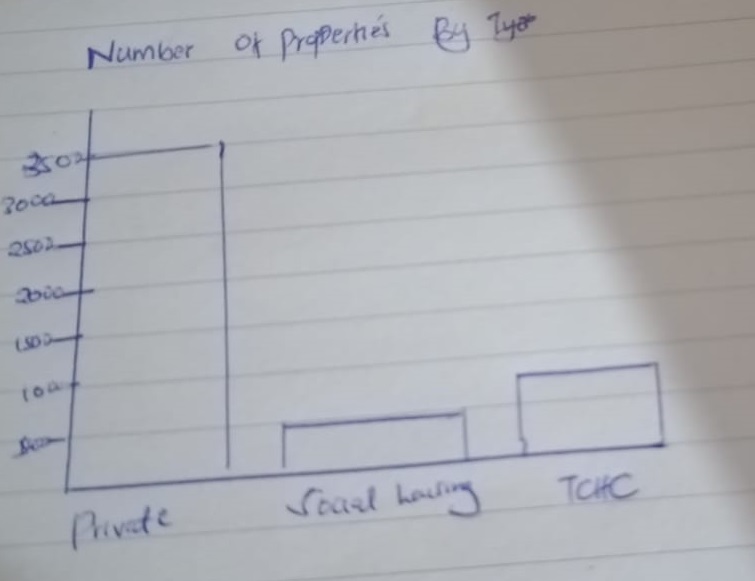 Number Of Properties By Type
3500
3000
2500
2000
1500
1000
500
Private
Social housing
TCHC